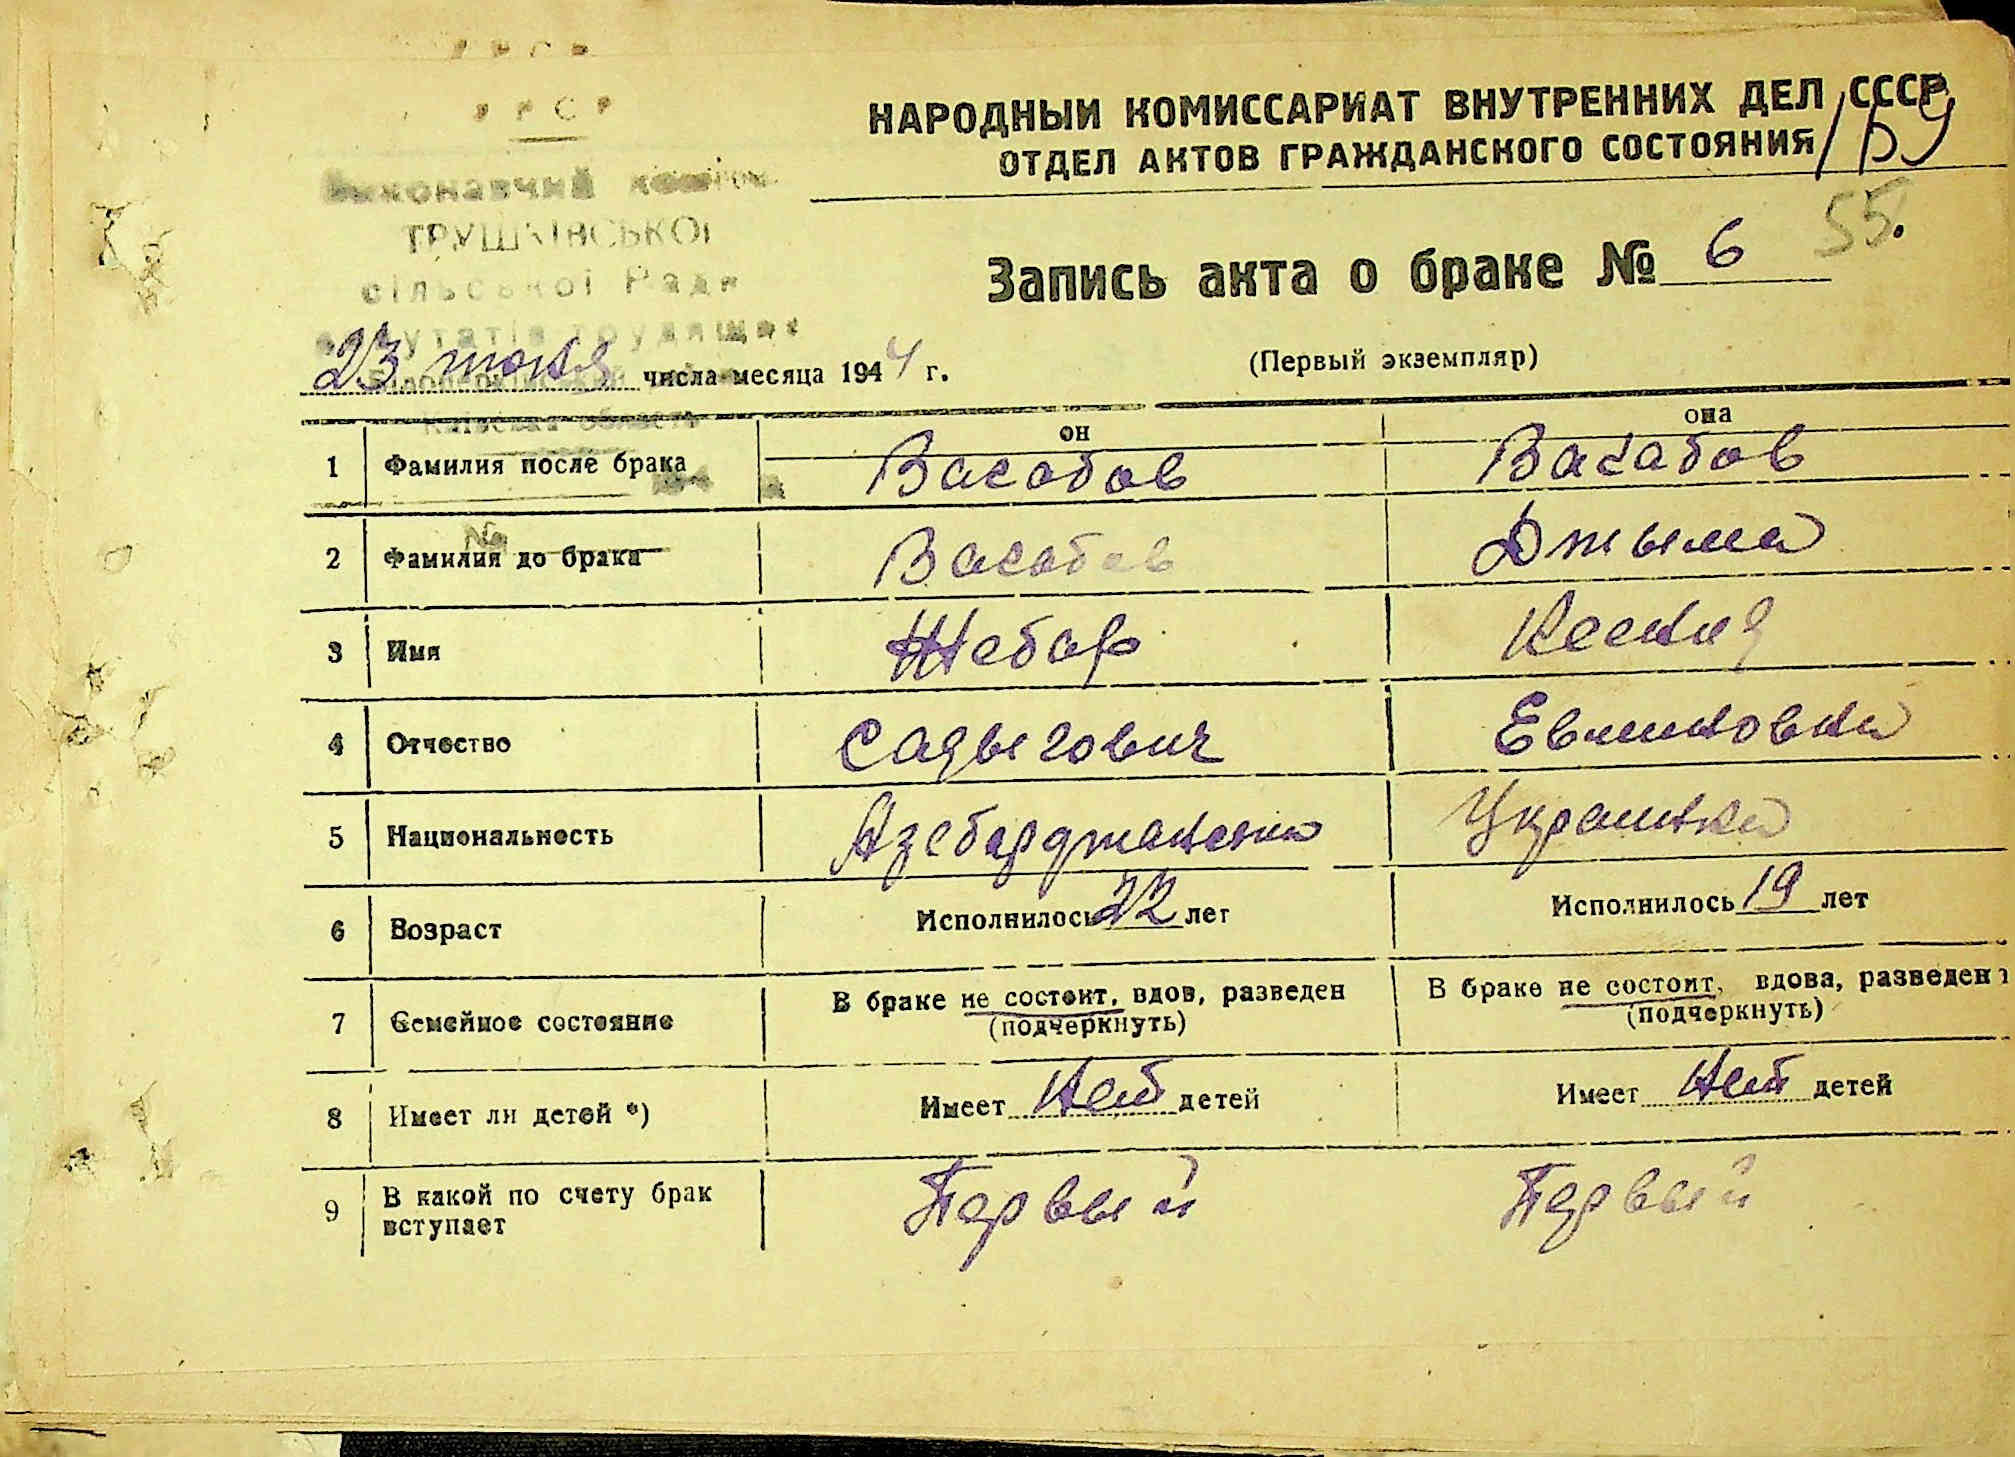 УРСР
Виконавчий комітет
ТРУШКІВСЬКОЇ
сільської Ради
депутатів трудящих
Київська область
№
НАРОДНЫЙ КОМИССАРИАТ ВНУТРЕННИХ ДЕЛ СССР
ОТДЕЛ АКТОВ ГРАЖДАНСКОГО СОСТОЯНИЯ
159
55.
Запись акта о браке № 6
(Первый экземпляр)
23 числа месяца 1944 г.
он она
1 Фамилия после брака Васабов Васабов
2 Фамилия до брака Васабов Джыма
3 Имя Жебар Ксения
4 Отчество Садыгович
5 Национальность Украинка
6 Возраст Исполнилось 22 лет Исполнилось 19 лет
7 Семейное состояние В браке не состоит, вдов, разведен (подчеркнуть) В браке не состоит, вдова, разведен (подчеркнуть)
8 Имеет ли детей *) Имеет Нет детей Имеет Нет детей
9 В какой по счету брак вступает Первый Первый